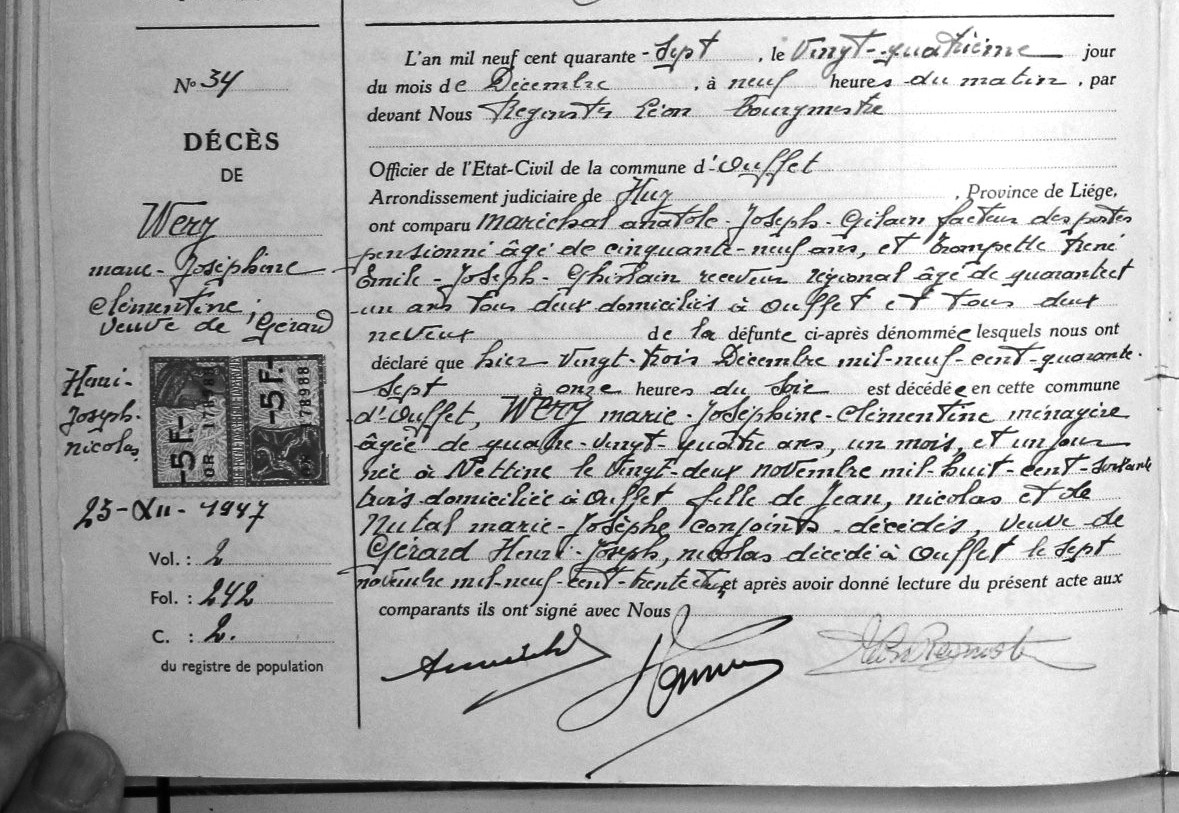 No 34
DÉCÈS
DE
Wery
marie-Joséphine
Clémentine,
veuve de Gérard
Henri-
Joseph-
nicolas
-5 F.-
-5 F.-
178988
23-XII-1947
Vol. : 2
Fol. : 242
C. : 2.
du registre de population
L'an mil neuf cent quarante-Sept, le Vingt-quatrième jour
du mois de Décembre, à neuf heures du matin, par
devant Nous Regnster Léon Bourgmestre
Officier de l'Etat-Civil de la commune d'Ouffet
Arrondissement judiciaire de Huy, Province de Liége,
ont comparu maréchal anatole-Joseph-Gilain facteur des postes
pensionné âgé de cinquante-neuf ans, et trompette rené
Emile-Joseph-Ghislain receveur régional âgé de quarante et
un ans tous deux domiciliés à Ouffet et tous deux
neveux de la défunte ci-après dénommée lesquels nous ont
déclaré que hier vingt-trois Décembre mil-neuf-cent-quarante-
Sept à onze heures du Soir est décédée en cette commune
d'Ouffet, Wery marie-Joséphine-Clémentine ménagère
âgée de quatre-vingt-quatre ans, un mois, et un jour
née à Nettine le vingt-deux novembre mil-huit-cent-soixante
trois domiciliée à Ouffet fille de Jean, nicolas et de
marie-Josèphe conjoints décédés, veuve de
Gérard Henri-Joseph, nicolas décédé à Ouffet le sept
novembre mil-neuf-cent-trente et après avoir donné lecture du présent acte aux
comparants ils ont signé avec Nous